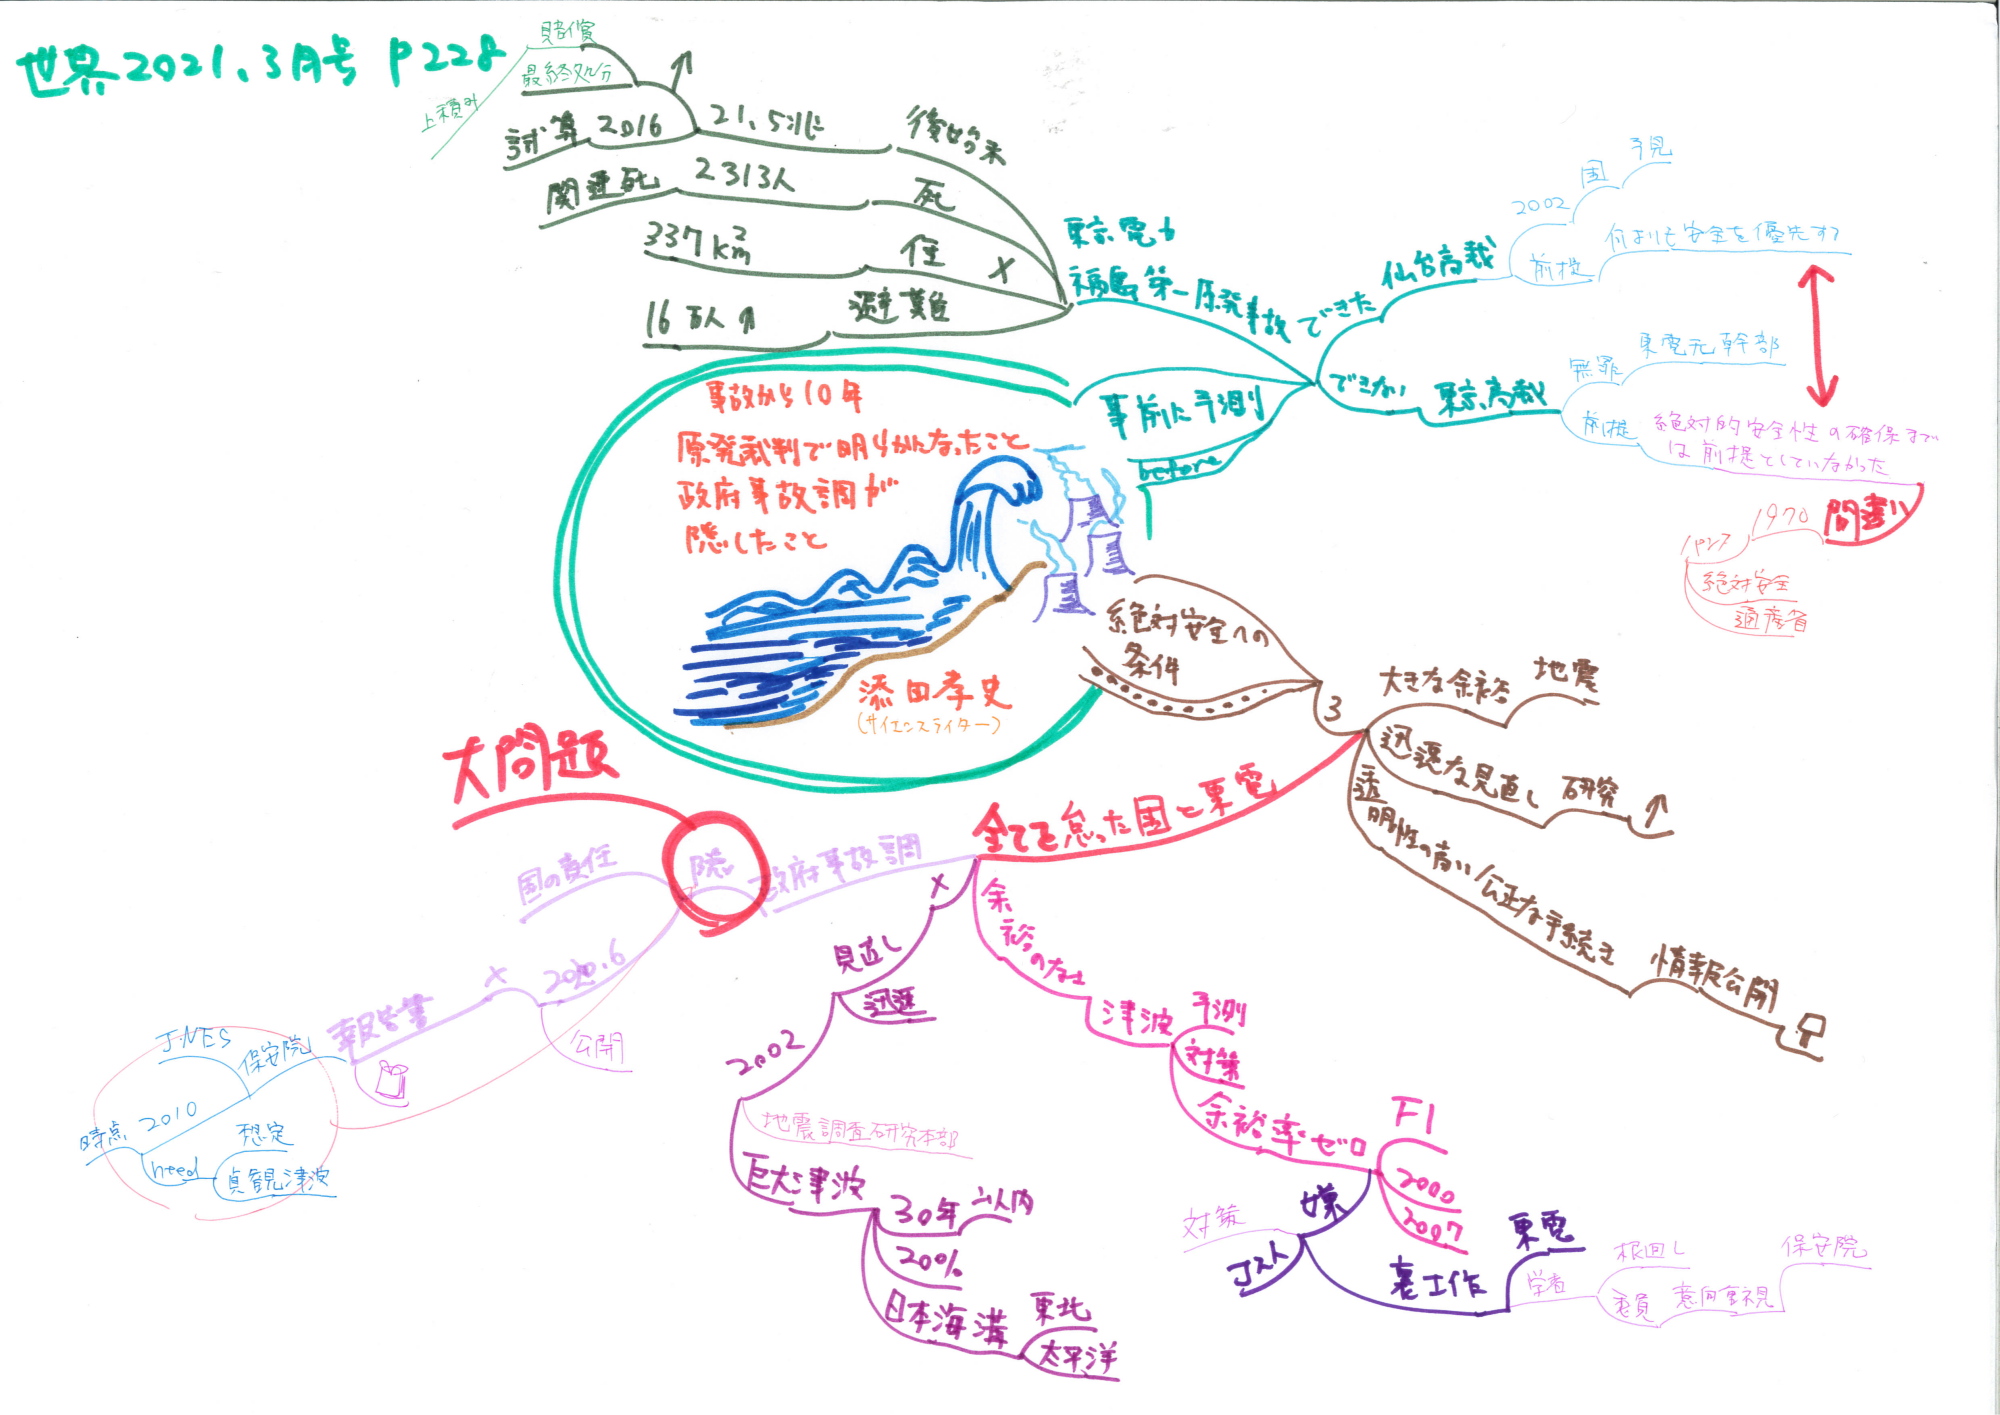 世界2021.3月号 P228
賠償
最終処分
上積み
試算 2016 21.5兆 後始末
関連死 2313人 死
337km² 住 ×
16万人↑ 避難
東京電力
福島第一原発事故
事前に予測
before
できた 仙台高裁
2002 国 予見
前提 何よりも安全を優先する
できない 東京高裁
無罪 東電元幹部
前提 絶対的安全性の確保まで
は前提としていなかった
間違い
1970
パンフ
絶対安全
通産省
事故から10年
原発裁判で明らかになったこと
政府事故調が
隠したこと
添田孝史
(サイエンスライター)
絶対安全への
条件
3
大きな余裕 地震
迅速な見直し 研究 ↑
透明性の高い公正な手続き 情報公開
全てを怠った国と東電
大問題
政府事故調
隠し
国の責任
公開
報告書 ×
保安院
JNES
時点 2010
need 想定
貞観津波
×
見直し
迅速
2002
地震調査研究本部
巨大津波
30年 以内
20%
日本海溝 東北
太平洋
余裕のなさ
津波 予測
対策
余裕率ゼロ
F1
2000
2007
嫌
対策
コスト
裏工作 東電
学者 根回し
委員 意向重視 保安院